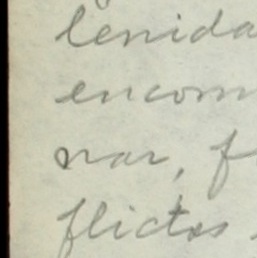 lenida
encom
nar, f
flictos